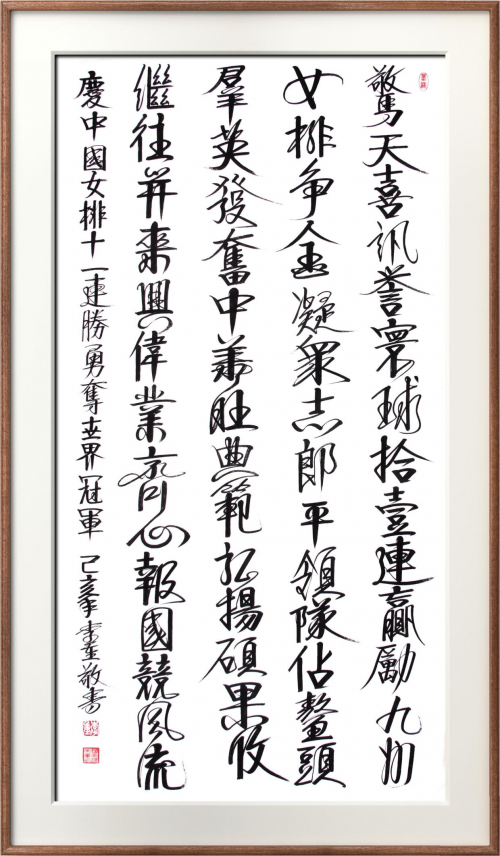 驚天喜訊譽寰球拾壹連贏勵九州
女排争金凝衆志郎平領隊佔鰲頭
羣英發奮中華旺典範弘揚碩果收
繼往开來興偉業齊心報國競風流
慶中國女排十一連勝勇奪世界冠軍 己亥年李敬書